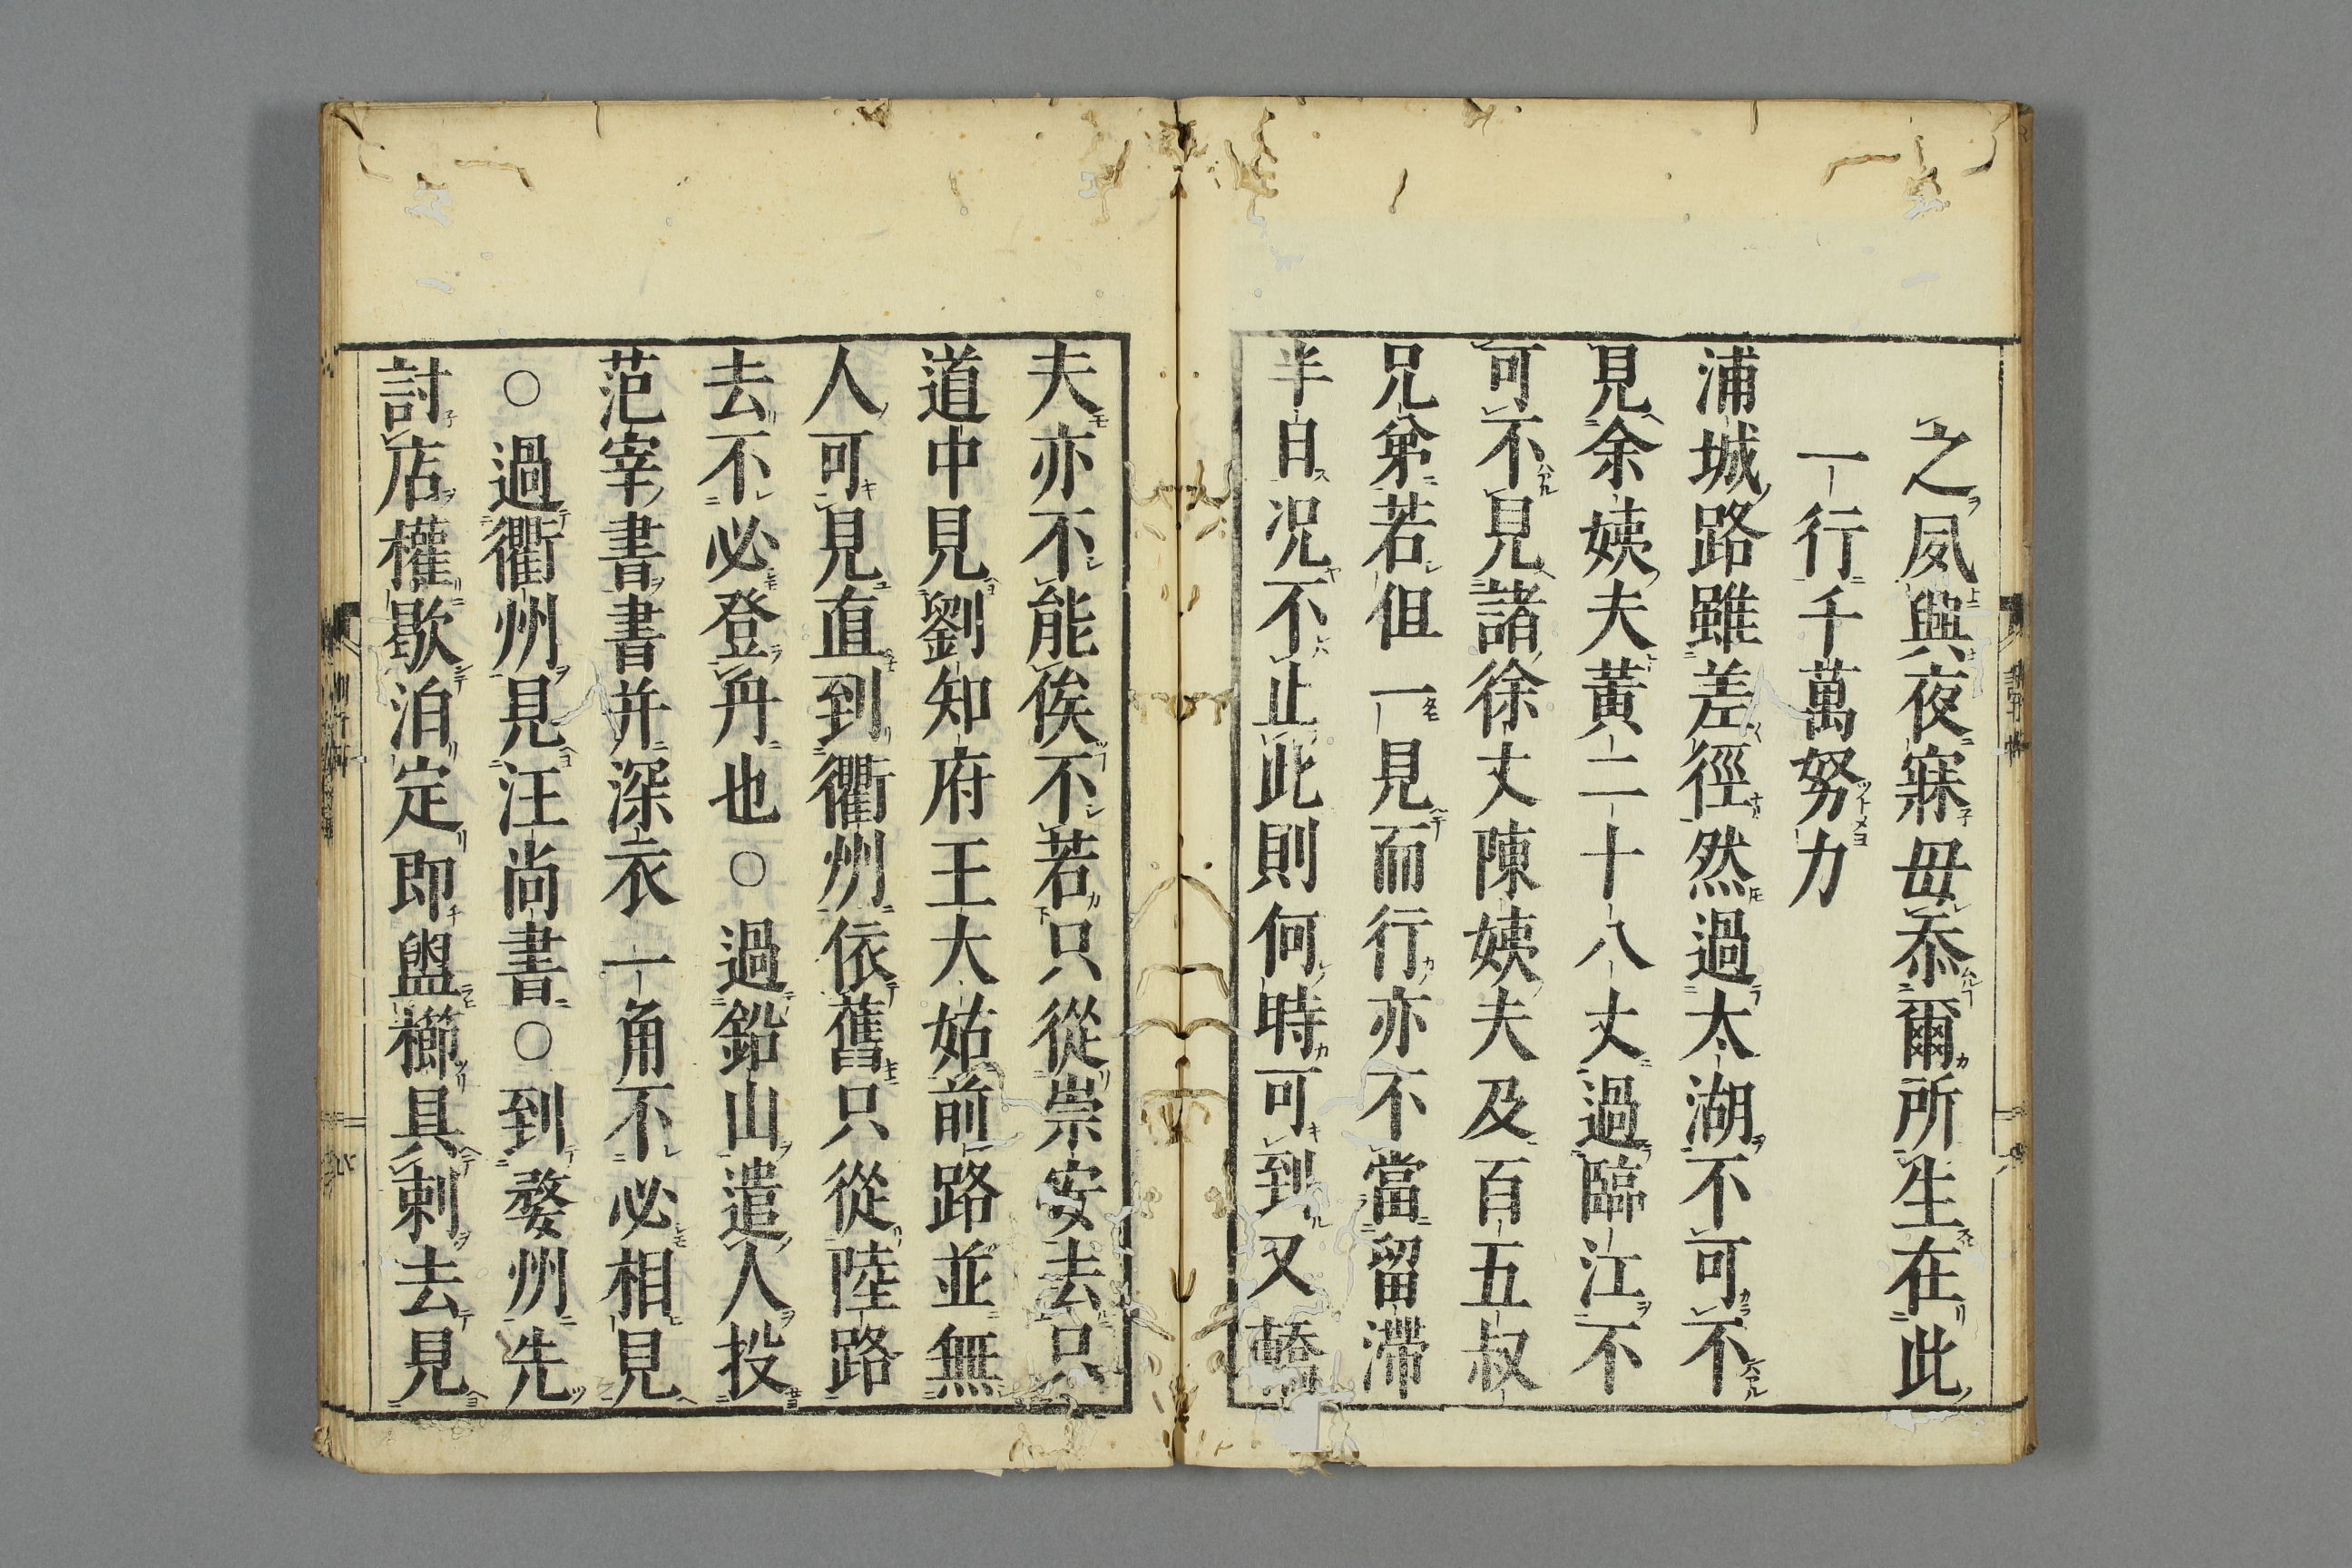 之夙興夜寐毋忝爾所生在此
一行千萬努力
浦城路雖差徑然過太湖不可不
見余姨夫黃二十八丈過臨江不
可不見諸徐丈陳姨夫及百五叔
兄弟若但一見而行亦不當留滯
半日况不止此則何時可到又轎
夫亦不能俟不若只從崇安去只
道中見劉知府王大姑前路並無
人可見直到衢州依舊只從陸路
去不必登舟也○過鉛山遣人投
范宰書書并深衣一角不必相見
○過衢州見汪尚書○到婺州先
討店權歇泊定即盥櫛具刺去見